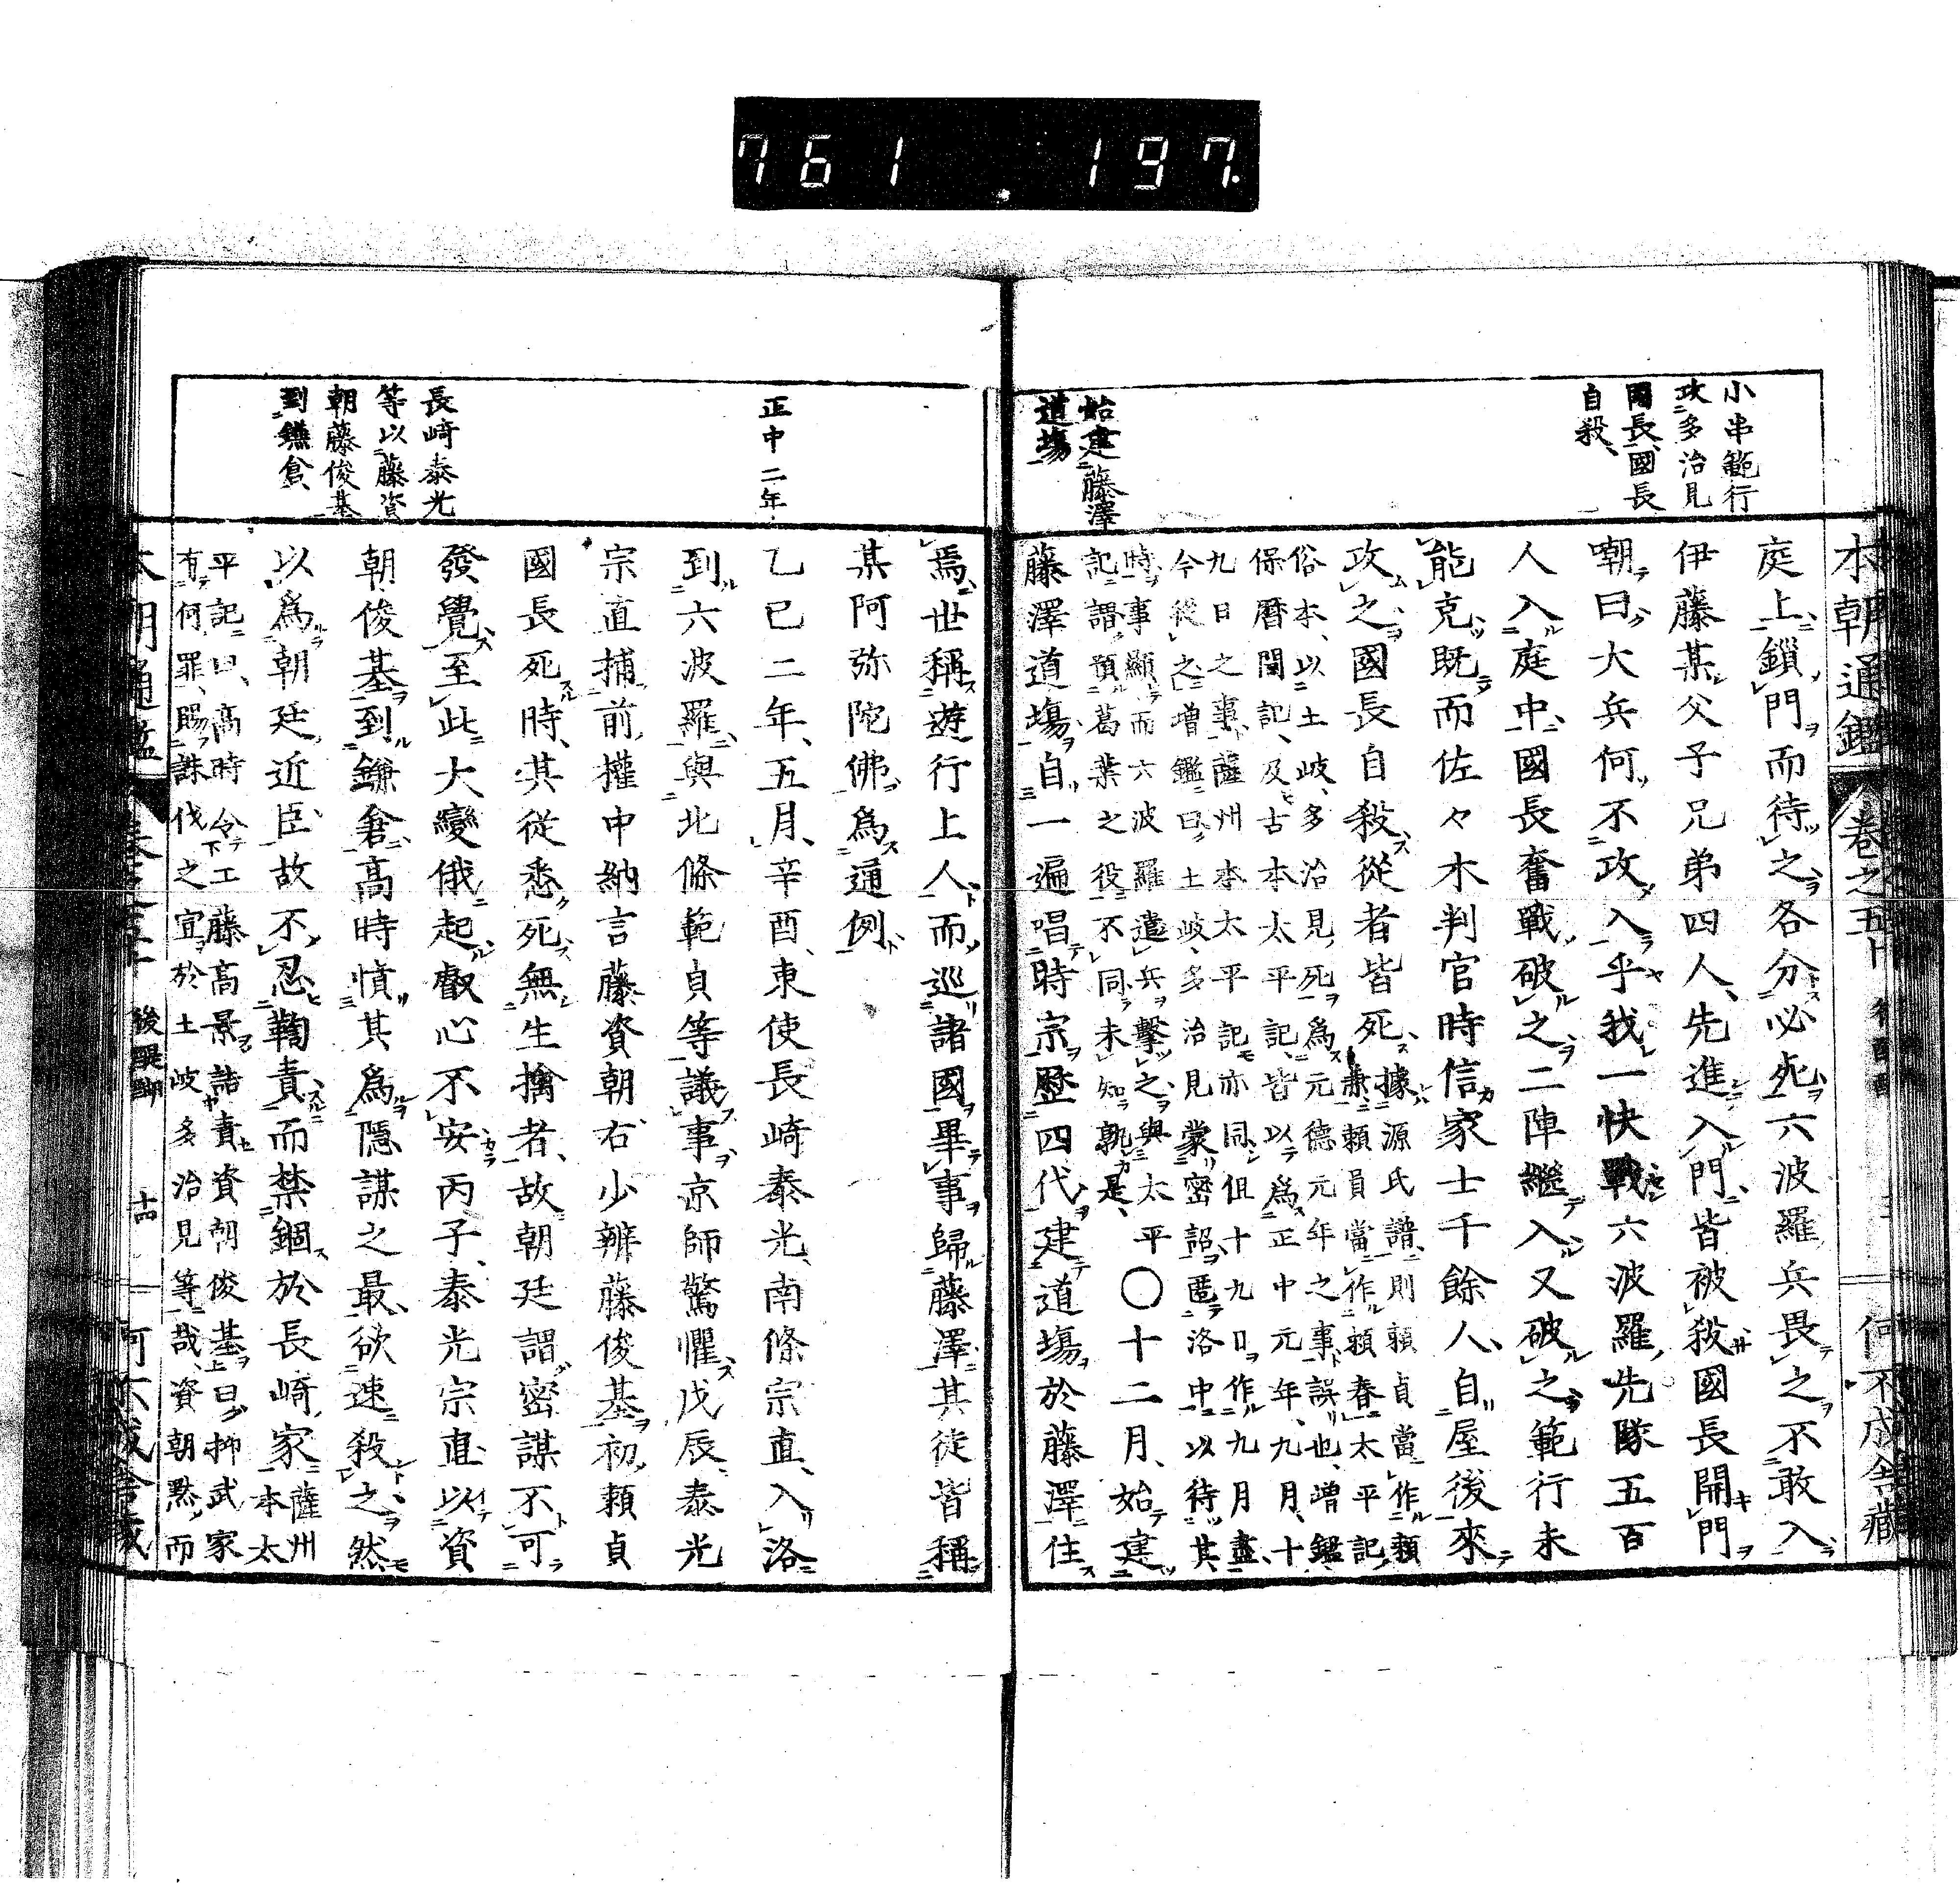 761 197
本朝通鑑 卷之五十
何不成舎藏
小串範行
攻多治見
國長國長
自殺
庭上鎖門而待之各分必死六波羅兵畏之不敢入
伊藤某父子兄弟四人先進入門皆被殺國長開門
嘲曰大兵何不攻入乎我一快戰六波羅先隊五百
人入庭中國長奮戰破之二陣繼入又破之範行未
能克既而佐々木判官時信家士千餘人自屋後來
攻之國長自殺從者皆死
據源氏譜則賴貞當作賴
兼賴員當作賴春太平記
俗本以土岐多治見死爲元德元年之事誤也增鑑
保曆間記及古本太平記皆以爲正中元年九月十
九日之事薩州本太平記亦同但十九日作九月盡
今從之增鑑曰土岐多治見蒙密詔匿洛中以待其
時事顯而六波羅遣兵擊之與太平
記謂預葛葉之役不同未知孰是
〇十二月始建
始建藤澤
道場
藤澤道場自一遍唱時宗歷四代建道場於藤澤住
焉世稱遊行上人而巡諸國畢事歸藤澤其徒皆稱
某阿弥陀佛爲通例
正中二年
乙巳二年五月辛酉東使長崎泰光南條宗直入洛
到六波羅與北條範貞等議事京師驚懼戊辰泰光
宗直捕前權中納言藤資朝右少辨藤俊基初賴貞
國長死時其從悉死無生擒者故朝廷謂密謀不可
發覺至此大變俄起叡心不安丙子泰光宗直以資
長崎泰光
等以藤資
朝藤俊基
到鎌倉
朝俊基到鎌倉高時憤其爲隱謀之最欲速殺之然
以爲朝廷近臣故不忍鞫責而禁錮於長崎家
薩州
本太
平記曰高時令工藤高景詰責資朝俊基曰抑武家
有何罪賜誅伐之宣於土岐多治見等哉資朝黙而
後醍醐 十四